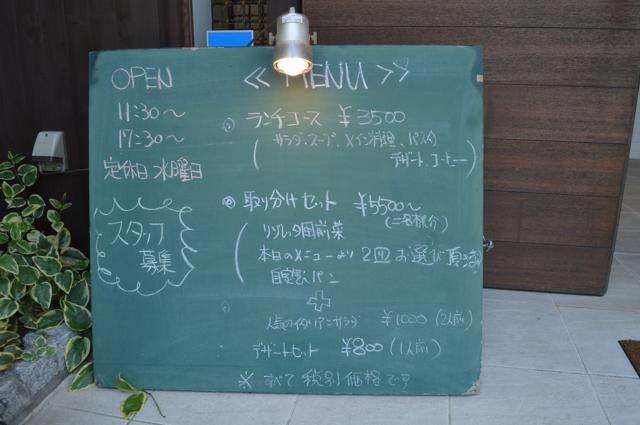 OPEN
11:30〜
17:30〜
定休日 水曜日
スタッフ
募集
≪ MENU ≫
ランチコース ¥3500
サラダ、スープ、メイン料理、パスタ
デザート、コーヒー
取り分けセット ¥5500〜
(二名様分)
前菜
本日のメニューより 2皿お選び頂けます
自家製パン
+
人気のイタリアンサラダ ¥1000 (2人前)
デザートセット ¥800 (1人前)
※ すべて税別価格です